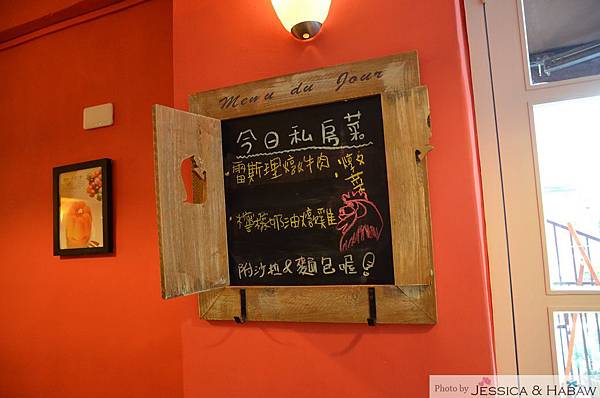 Menu du Jour
今日私房菜
·雷斯理燉牛肉
燉菜
·檸檬奶油燉雞
附沙拉&麵包喔!
Photo by JESSICA & HABAW